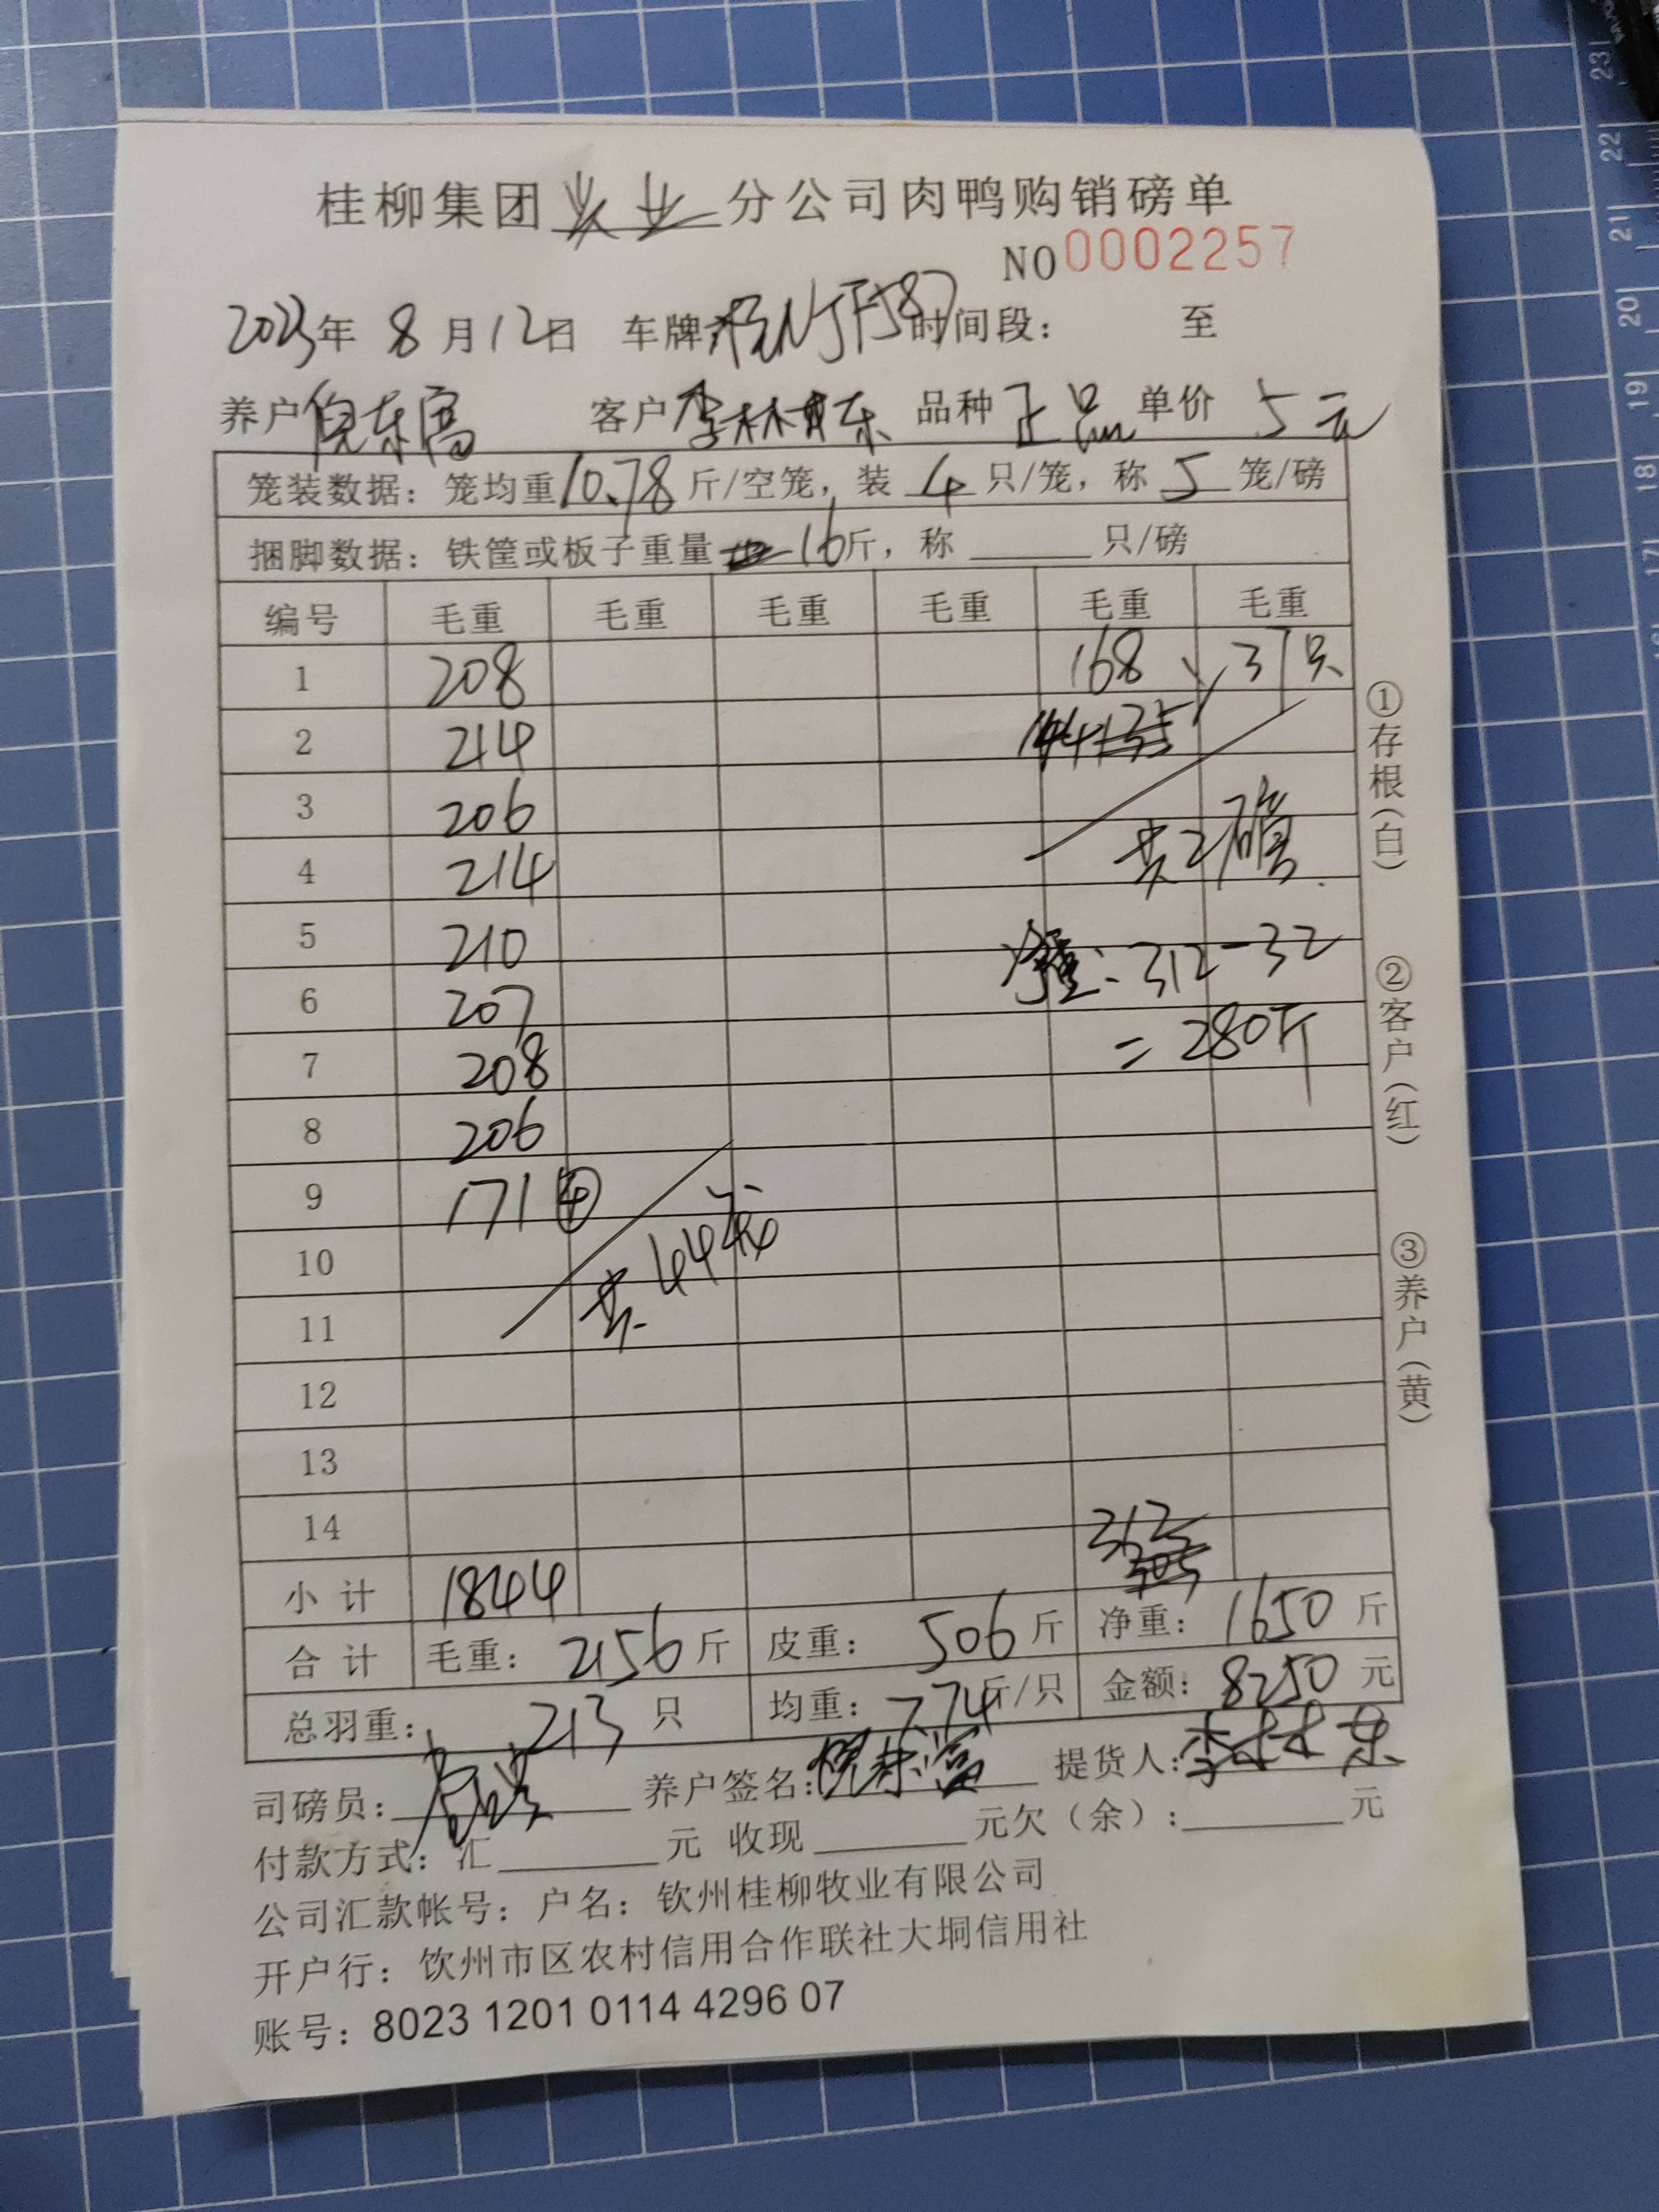 桂柳集团 分公司肉鸭购销磅单
NO 0002257
2023年 8月12日 车牌 NJF587 时间段： 至
养户 倪东富 客户 李林东 品种 正品 单价 5元
笼装数据：笼均重10.78斤/空笼，装 4 只/笼，称 5 笼/磅
捆脚数据：铁筐或板子重量 16斤，称 只/磅
编号 毛重 毛重 毛重 毛重 毛重 毛重
1 208 168 37只
2 214 144
3 206
4 214 共2磅
5 210 净重：312-32
6 207 =280斤
7 208
8 206
9 171 ④
10 共44笼
11
12
13
14 312
小计 1844
合计 毛重：2156斤 皮重：506斤 净重：1650斤
总羽重：213只 均重：7.74斤/只 金额：8250元
司磅员： 养户签名：倪东富 提货人：李林东
付款方式：汇 元 收现 元欠（余）： 元
公司汇款帐号：户名：钦州桂柳牧业有限公司
开户行：饮州市区农村信用合作联社大垌信用社
账号：8023 1201 0114 4296 07
①存根（白） ②客户（红） ③养户（黄）